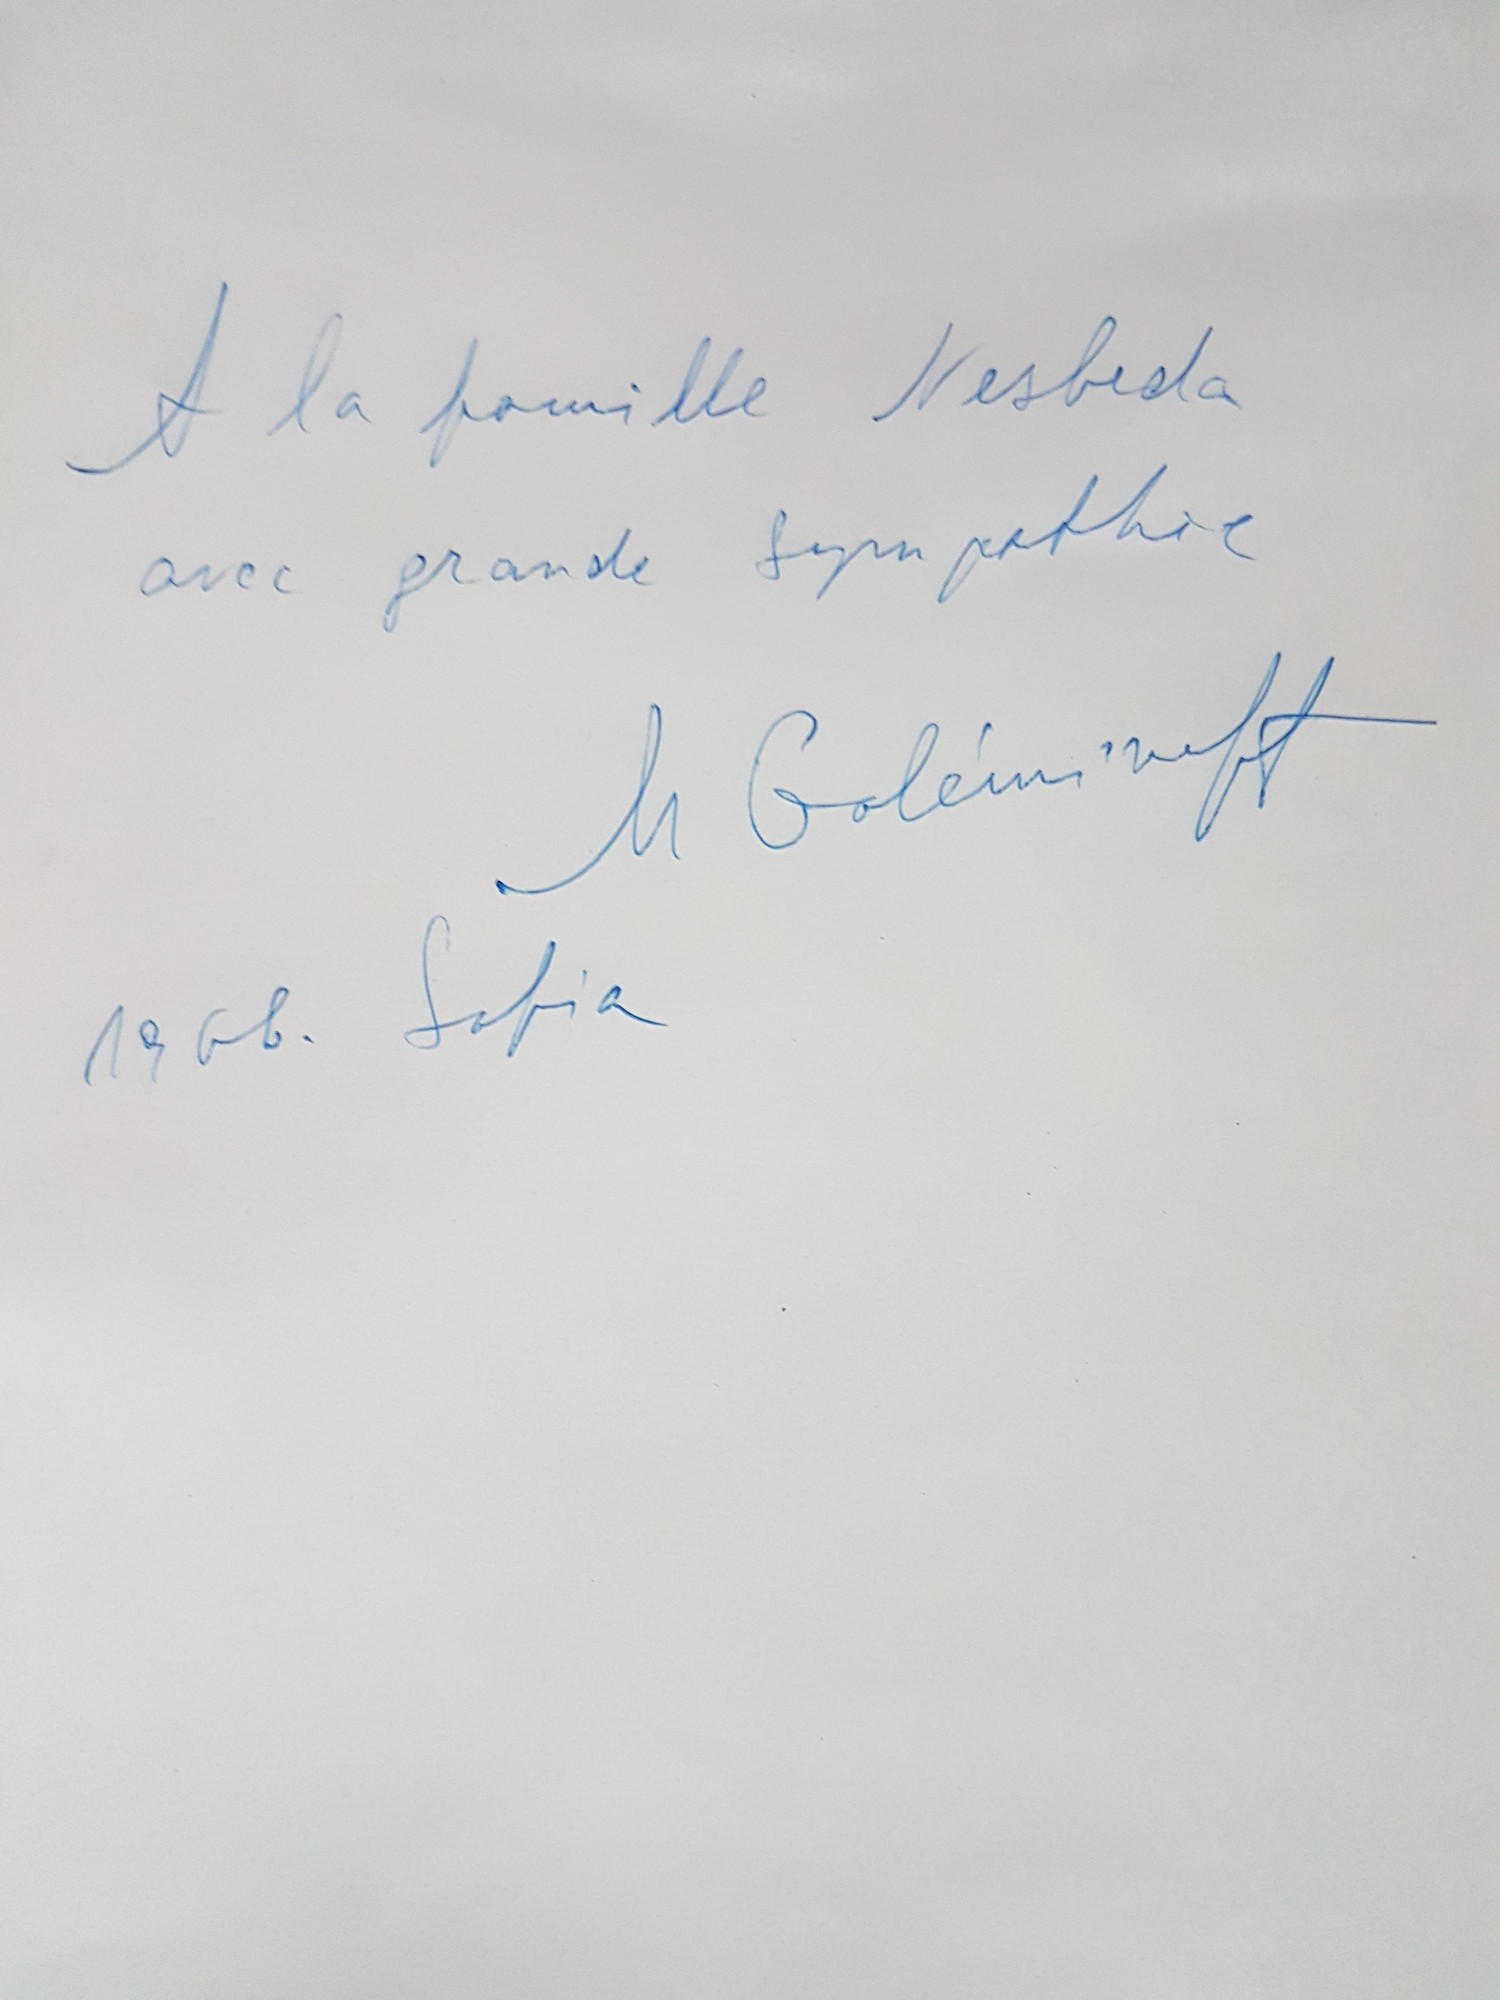 A la famille Nesbeda
avec grande sympathie
M Goléminoff
1968. Sofia